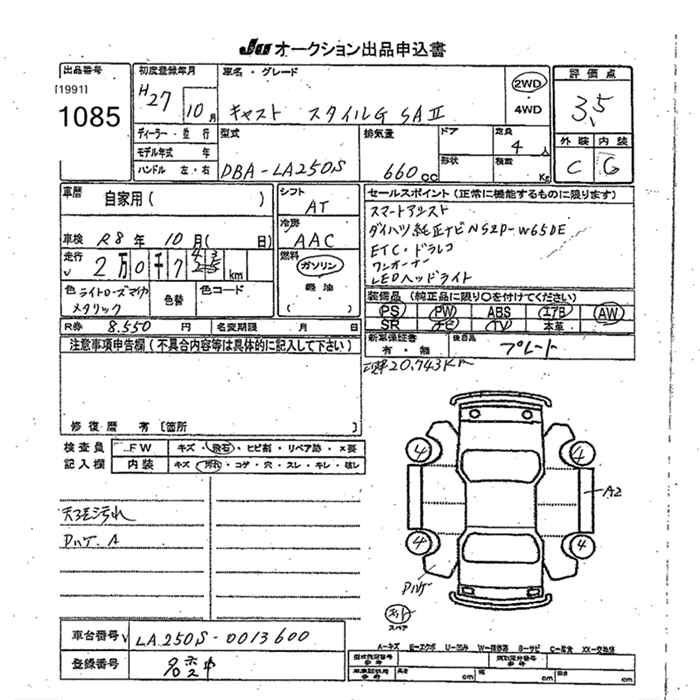 JU オークション出品申込書
出品番号
[1991]
1085
初度登録年月
H27 10月
車名・グレード
キャスト スタイルG SAⅡ
2WD
4WD
評価点
3.5
外装 内装
C C
ディーラー・並行
モデル年式 年
ハンドル 左・右
型式
DBA-LA250S
排気量
660cc
ドア
形状
定員
4人
積載
Kg
車歴
自家用( )
車検 R8年 10月( 日)
走行
2万0千7 km
色 ライトローズマイカ
メタリック
色替
色コード
シフト
AT
冷房
AAC
燃料
ガソリン
軽油
( )
セールスポイント(正常に機能するものに限ります)
スマートアシスト
ダイハツ純正ナビNSZP-W65DE
ETC・ドラレコ
ワンオーナー
LEDヘッドライト
装備品(純正品に限り○を付けてください)
PS PW ABS エアB AW
SR ナビ TV 本革
R券 8,550円 名変期限 月 日
新車保証書
有・無
後日品
プレート
20,743Km
注意事項申告欄(不具合内容等は具体的に記入して下さい)
修復歴 有〔箇所 〕
検査員
記入欄
FW キズ・飛石・ヒビ割・リペア跡・X要
内装 キズ・汚れ・コゲ・穴・スレ・キレ・破レ
天張汚れ
Dハゲ.A
4 4
A2
4 4
Dハゲ
スペア
車台番号 LA250S-0013600
登録番号 名変中
A-キズ E-エクボ U-凹み W-補修跡 S-サビ C-腐食 XX-交換済
長さ cm 幅 cm 高さ cm